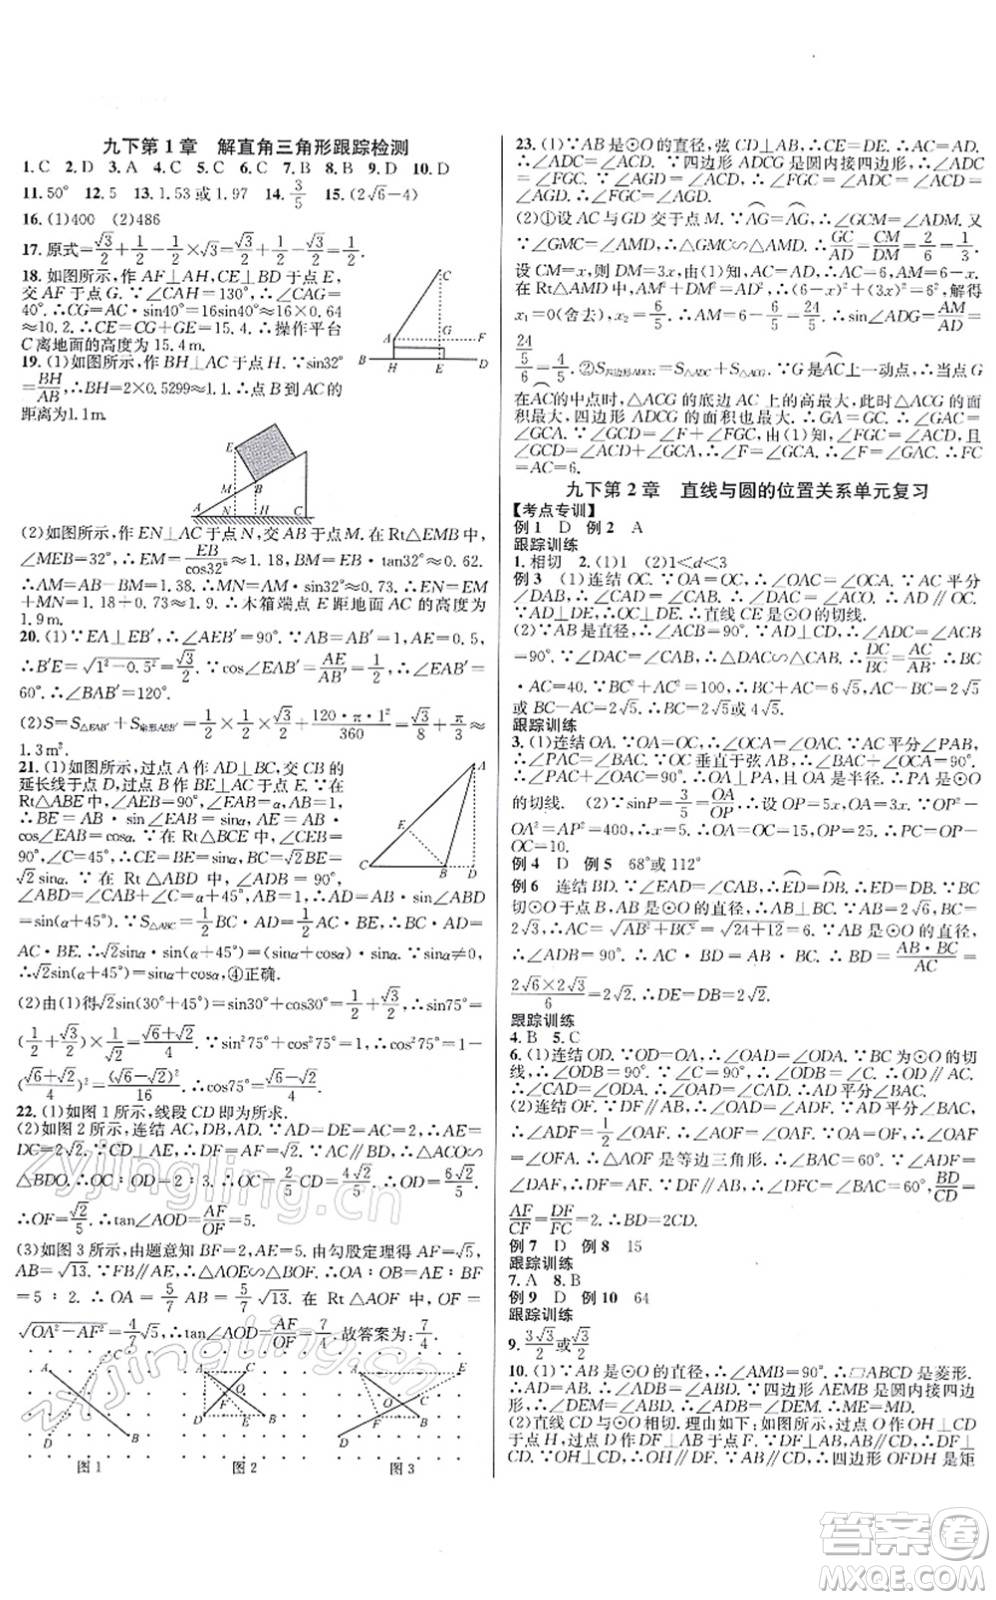 九下第1章　解直角三角形跟踪检测
1. C　2. D　3. A　4. C　5. C　6. C　7. B　8. B　9. C　10. D
11. 50°　12. 5　13. 1.53或1.97　14. 3/5　15. (2√6-4)
16. (1)400　(2)486
17. 原式=√3/2+1/2-1/2×√3=√3/2+1/2-√3/2=1/2.
18. 如图所示,作AF⊥AH,CE⊥BD于点E,
交AF于点G.∵∠CAH=130°,∴∠CAG=
40°.∴CG=AC·sin40°=16sin40°≈16×0.64
≈10.2.∴CE=CG+GE≈15.4.∴操作平台
C离地面的高度为15.4m.
19. (1)如图所示,作BH⊥AC于点H.∵sin32°
=BH/AB,∴BH=2×0.5299≈1.1.∴点B到AC的
距离为1.1m.
(2)如图所示,作EN⊥AC于点N,交AB于点M.在Rt△MEB中,
∠MEB=32°,∴EM=EB/cos32°.∵tan32°=MB/EB,∴MB≈0.62.
∴AM=AB-MB≈1.38.∴MN=AM·sin32°≈0.73.∴EN=EM
+MN≈1.18+0.73≈1.9.∴木箱端点E距地面AC的高度为
1.9m.
20. (1)∵EA⊥EB′,∴∠AEB′=90°.∵AB=AB′=1,AE=0.5,
∴B′E=√(1²-0.5²)=√3/2.∵cos∠EAB′=AE/AB′=1/2,∴∠EAB′=
60°.∴∠BAB′=120°.
(2)S=S△EAB′+S扇形ABB′=1/2×1/2×√3/2+120·π·1²/360=√3/8+π/3≈
1.3m².
21. (1)如图所示,过点A作AD⊥BC,交CB的
延长线于点D,过点B作BE⊥AC于点E.∵在
Rt△ABE中,∠AEB=90°,∠EAB=α,∴BE
=AB·sin∠EAB=sinα,AE=AB·
cos∠EAB=cosα.∵在Rt△BCE中,∠CEB=
90°,∠C=45°,∴CE=BE=sinα,BC=√2BE=
√2sinα.∵在Rt△ABD中,∠ADB=90°,
∠ABD=∠CAB+∠C=α+45°,∴AD=AB·sin∠ABD=
sin(α+45°).∵S△ABC=1/2BC·AD=1/2AC·BE,∴BC·AD=
AC·BE.∴√2sinα·sin(α+45°)=(sinα+cosα)sinα.∵sinα≠0,
∴√2sin(α+45°)=sinα+cosα,④正确.
(2)由(1)得√2sin(30°+45°)=sin30°+cos30°=1/2+√3/2.∴sin75°=
(1/2+√3/2)÷√2=(√6+√2)/4.∵sin²75°+cos²75°=1,∴cos²75°=1-
((√6+√2)/4)²=(√6-√2)²/16.∴cos75°=(√6-√2)/4.
22. (1)如图1所示,线段CD即为所求.
(2)如图2所示,连结AC,DB,AD.∵AD=DE=2,∴AE=
2√2.∵CD⊥AE,∴DF=AF=√2.∵AC∥BD,∴△ACO∽
△BDO.∴CO∶DO=2∶3.∴CO=2/5CD=2/5×2√2=4√2/5.
∴OF=√2/5.∴tan∠AOD=AF/OF=5.
(3)如图3所示,由题意知BF=2,AE=5.由勾股定理得AF=√5,
AB=√13.∵FB∥AE,∴△AOE∽△BOF.∴AO∶OB=AE∶FB
=5∶2.∴OA=5/7AB=5/7√13.∴在Rt△AOF中,OF=
√(OA²-AF²)=4/7√5,∴tan∠AOD=AF/OF=7/4.故答案为:7/4.
图1
图2
图3
23. (1)∵AB是⊙O的直径,弦CD⊥AB,∴AD=AC.
∴∠ADC=∠AGD.∵四边形ADCG是圆内接四边形,∴∠ADC
=∠FGC.∵∠AGD=∠FGC.∴∠FGC=∠AGD.
(2)①设AC与GD交于点M.∵AG=AG,∴∠GCM=∠ADM.又
∵∠GMC=∠AMD,∴△GMC∽△AMD.∴GC/AD=CM/DM=2/6=1/3.
设CM=x,则DM=3x,由(1)知,AC=AD,∴AC=6,AM=6-x.
在Rt△AMD中,AM²+DM²=AD²,∴(6-x)²+(3x)²=6²,解得
x₁=0(舍去),x₂=6/5.∴AM=6-6/5=24/5.∴sin∠ADG=AM/AD=
(24/5)/6=4/5.②S四边形ADCG=S△ADC+S△ACG.∵G是AC上一动点,当点G
在AC的中点时,△ACG的底边AC上的高最大,此时△ACG的面
积最大,四边形ADCG的面积也最大.∴GA=GC.∴∠GAC=
∠GCA.∵∠GCD=∠F+∠FGC.由(1)知,∠FGC=∠ACD,且
∠GCD=∠ACD+∠GCA,∴∠F=∠GCA.∴∠F=∠GAC.∴FC
=AC=6.
九下第2章　直线与圆的位置关系单元复习
【考点专训】
例1　D　例2　A
跟踪训练
1. 相切　2. (1)1　(2)1<d<3
例3　(1)连结OC.∵OA=OC,∴∠OAC=∠OCA.∵AC平分
∠DAB,∴∠DAC=∠OAC.∴∠DAC=∠OCA.∴OC∥AD.
∵AD⊥DE,∴OC⊥DE.∴直线CE是⊙O的切线.
(2)∵AB是⊙O的直径,∴∠ACB=90°.∵AD⊥DC,∴∠ADC
=90°.∵∠DAC=∠CAB,∴△DAC∽△CAB.∴DC/BC=AC/AB.∴BC
·AC=40.∵BC²+AC²=100,∴BC+AC=6√5.∴BC=2√5
或BC=4√5.
跟踪训练
3. (1)连结OA.∵OA=OB,∴∠OAB=∠B.∵AC平分∠PAB,
∴∠PAC=∠CAB.∵OC垂直于弦AB,∴OA是半径,∴PA是⊙O
的切线.　(2)∵sinP=3/5=OA/OP,∴OP=5x,OA=3x.∵OP²-
OA²=AP²=400,∴x=5.∴OA=OC=15,OP=25.∴PC=OP-
OC=10.
例4　D　例5　68°或112°
例6　连结BD.∵∠EAD=∠CAB,∴ED=DB.∴ED=DB.∵BC
切⊙O于点B,AB是⊙O的直径,∴AB⊥BC.∵AB=2√6,BC=
2√3,∴AC=√(AB²+BC²)=√(24+12)=6.∵AB是⊙O的直径,
∴∠ADB=90°.∴AB·BC=AC·DB.∴BD=AB·BC/AC=
2√6×2√3/6=2√2.∴DE=DB=2√2.
跟踪训练
4. B　5. C
6. (1)连结OD.∵OD=OA,∴∠OAD=∠ODA.∵BC为⊙O的切
线,∴∠ODB=90°.∵∠C=90°,∴OD∥AC.∴AD平分∠BAC.
(2)连结OF.∵DF∥AB,∴∠ADF=∠OAD.∵∠OAD=∠DAF,
∴∠ADF=1/2∠OAF.∴△OAF是等边三角形.∴∠BAC=60°.
∵∠ADF=∠DAF,∴DF=AF.∵∠DFC=∠BAC=60°,BD/CD=
AF/CF=DF/FC=2.∴BD=2CD.
例7　D　例8　15
跟踪训练
7. A　8. B
例9　D　例10　64
跟踪训练
9. 3√3/2或√3/2
10. (1)∵AB是⊙O的直径,∴∠AMB=90°.∵▱ABCD是菱形.
∴∠AMB=∠AMD=90°.∵四边形AEMB是圆内接四边形,
∴∠DEM=∠ABD.∴∠ADB=∠DEM.∴ME=MD.
(2)直线CD与⊙O相切.理由如下:如图所示,过点O作OH⊥CD
于点H,过点D作DF⊥AB于点F.∴四边形OFDH是矩
答案圈
MXQE.COM
zyjingling.cn